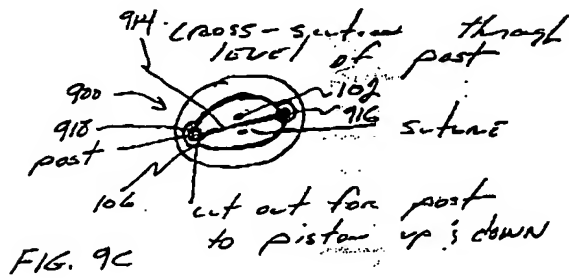 914
CROSS-section through
LEVEL of post
900
102
916
918
post
SUTURE
106
cut out for post
to piston up & down
FIG. 9C